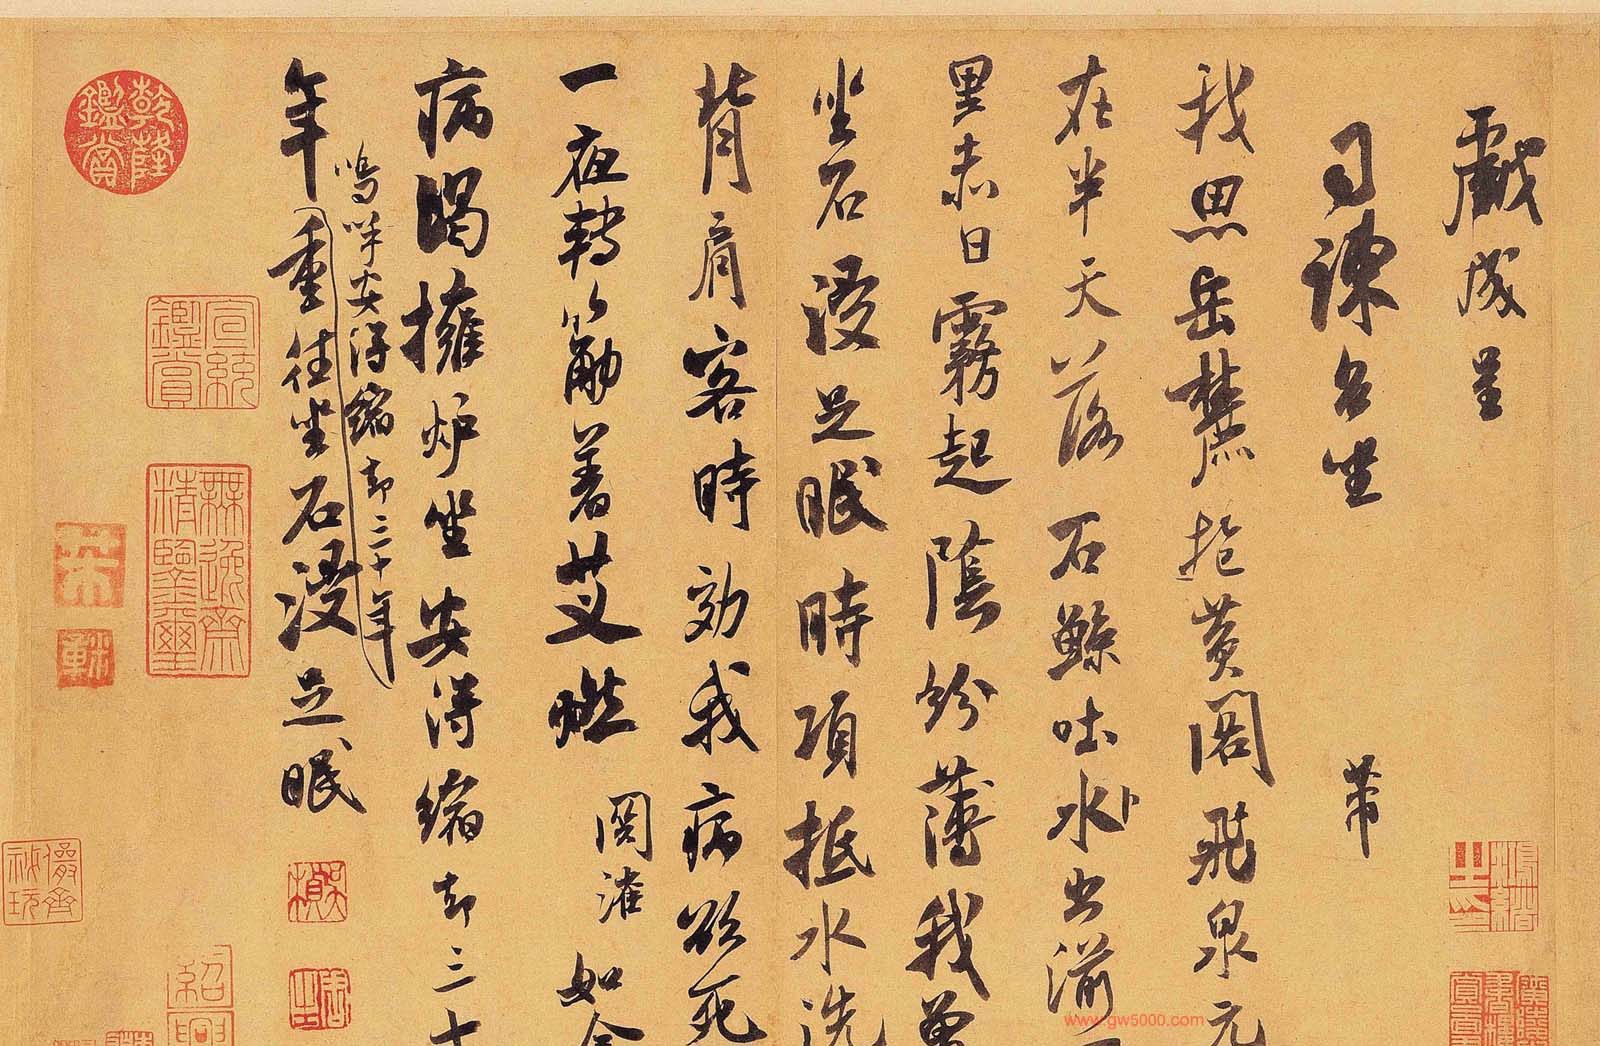 戲成呈
司諫台坐 芾
我思岳麓抱黃閣飛泉元
在半天落石鯨吐水出湔
里赤日霧起陰紛薄我曾
坐石浸足眠時項抵水洗
背肩客時効我病欲死
一夜轉筋著艾燃 関灌 如今
病渴擁炉坐安得縮却三十
嗚呼安得縮却三十年
年重往坐石浸足眠
乾隆鑑賞
宣統鑑賞
無逸齋精鑒璽
www.gw5000.com